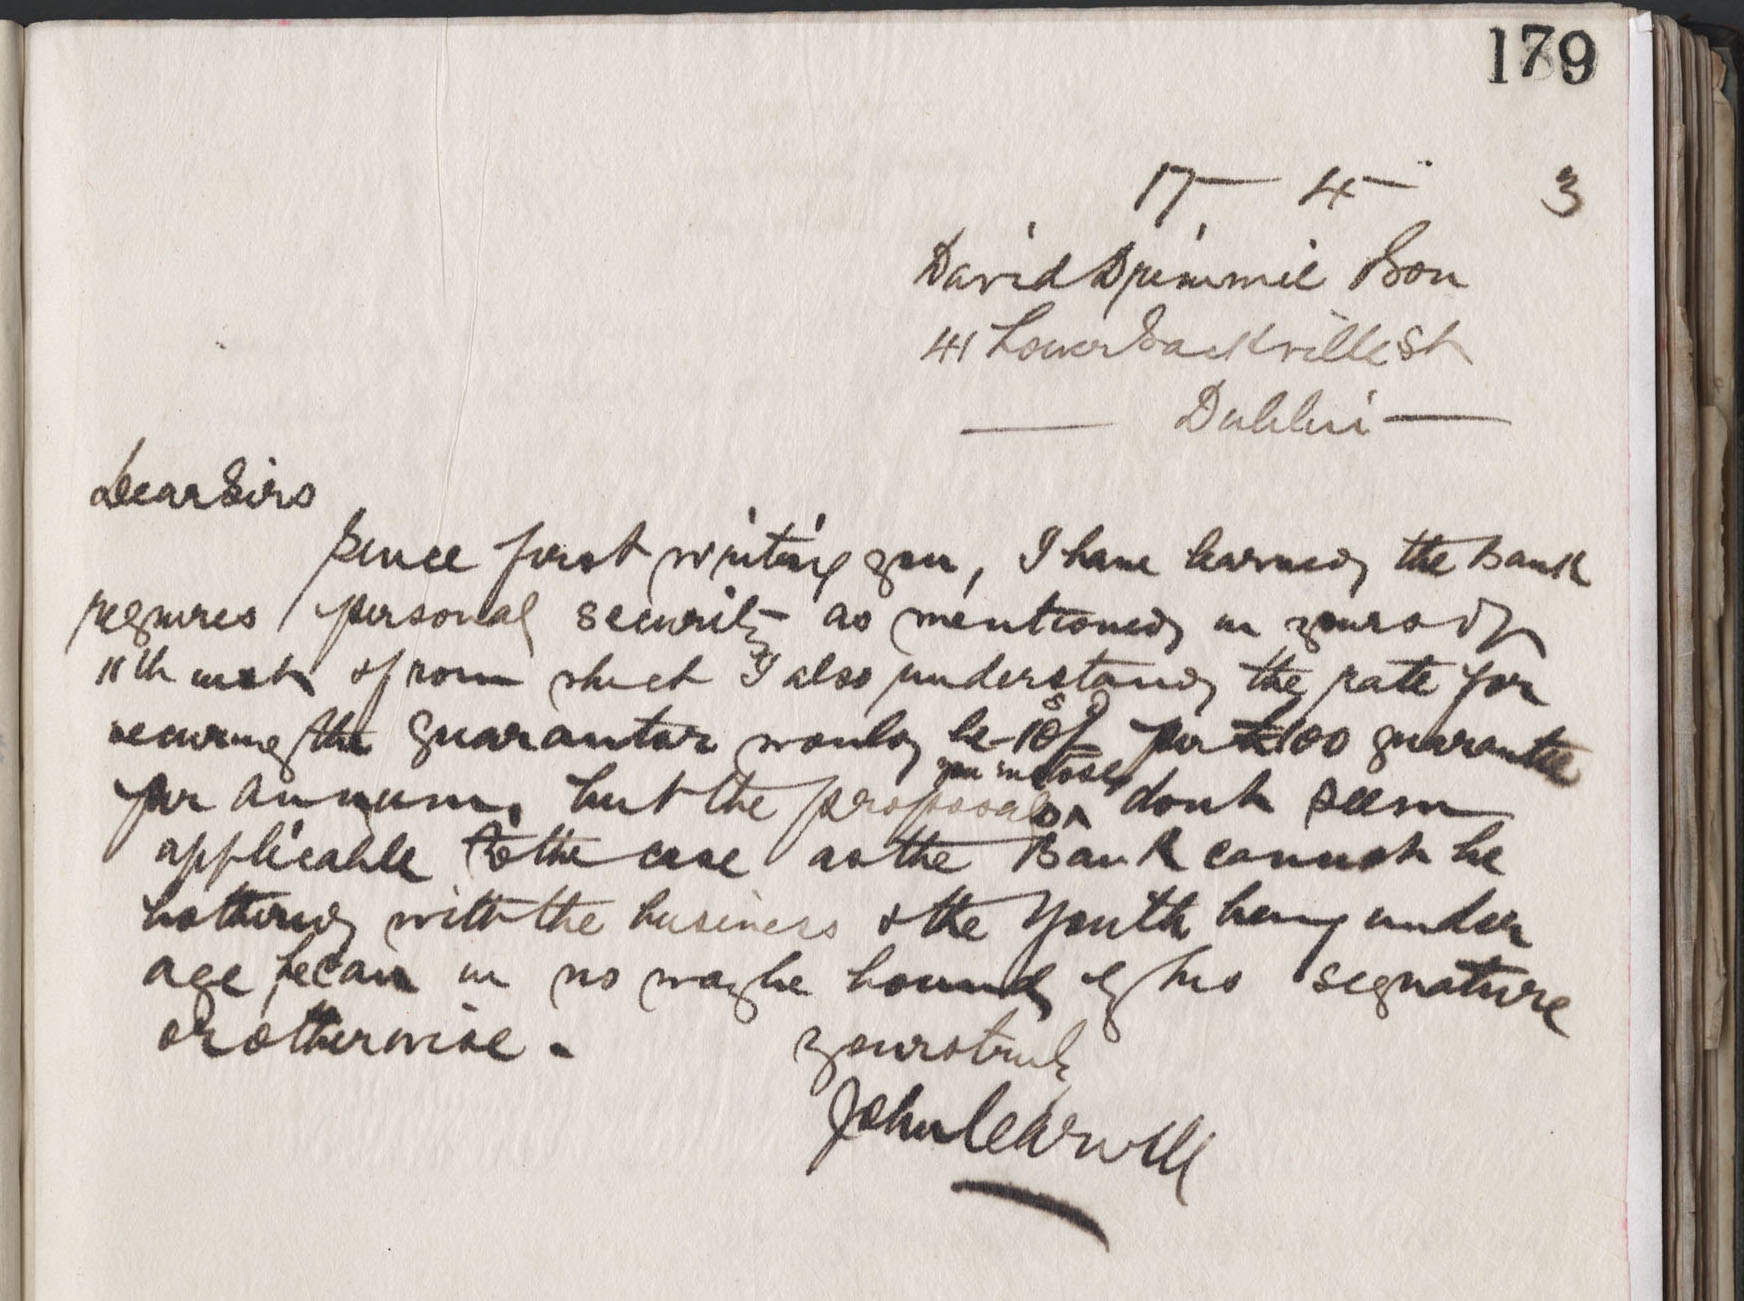 179
17 - 4 - 3
David Drimmie Son
41 Lower Sackville St
Dublin
Dear Sirs
Since first writing you, I have learned the Bank
requires personal security as mentioned in yours of
11th inst & from which I also understand the rate for
securing the guarantor would be 10/ per £100 guarantee
per annum, but the proposals you inclosed dont seem
applicable to the case as the Bank cannot be
bothered with the business & the Youth being under
age he can in no way be bound by his signature
or otherwise -
yours truly
John